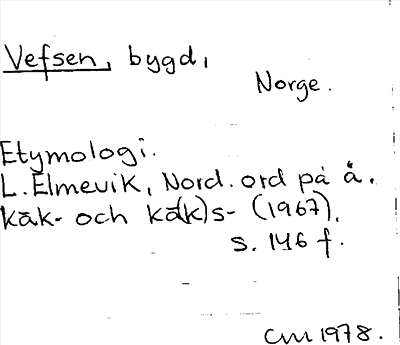 Vefsen, bygd,
Norge.
Etymologi.
L. Elmevik, Nord. ord på å.
kāk- och kā(k)s- (1967),
s. 146 f.
CM 1978.